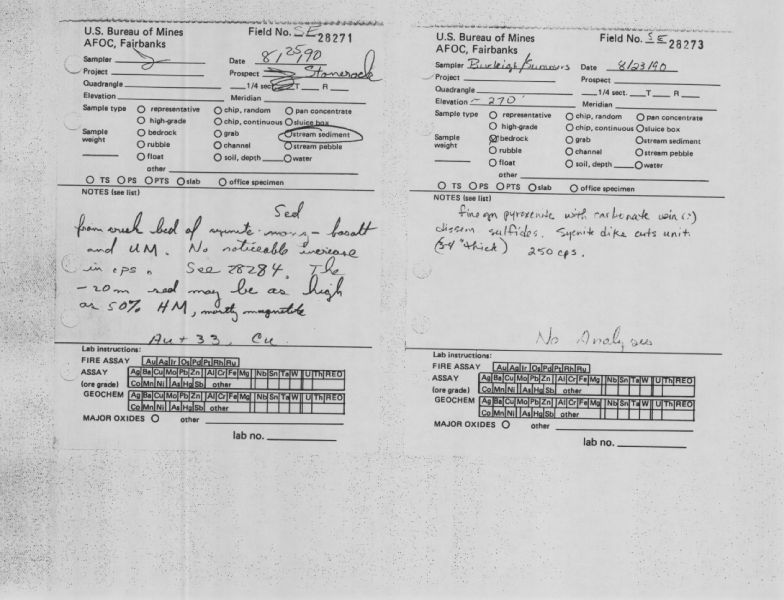 U.S. Bureau of Mines
AFOC, Fairbanks
Field No. SE 28271
Sampler
Date 8/25/90
Project
Prospect Stonerock
Quadrangle
1/4 sect. T R
Elevation
Meridian
Sample type
representative
chip, random
pan concentrate
high-grade
chip, continuous
sluice box
Sample weight
bedrock
grab
stream sediment
rubble
channel
stream pebble
float
soil, depth
water
other
TS PS PTS slab office specimen
NOTES (see list)
Sed
from creek bed of syenite - monz - basalt
and UM. No noticeable increase
in cps. See 28284. The
-20m sed may be as high
as 50% HM, mostly magnetite
Au + 33, Cu
Lab instructions:
FIRE ASSAY Au Ag Ir Os Pd Pt Rh Ru
ASSAY Ag Ba Cu Mo Pb Zn Al Cr Fe Mg Nb Sn Ta W U Th REO
(ore grade) Co Mn Ni As Hg Sb other
GEOCHEM Ag Ba Cu Mo Pb Zn Al Cr Fe Mg Nb Sn Ta W U Th REO
Co Mn Ni As Hg Sb other
MAJOR OXIDES other
lab no.
U.S. Bureau of Mines
AFOC, Fairbanks
Field No. SE 28273
Sampler Burleigh/Summers
Date 8/23/90
Project
Prospect
Quadrangle
1/4 sect. T R
Elevation ~ 270'
Meridian
Sample type
representative
chip, random
pan concentrate
high-grade
chip, continuous
sluice box
Sample weight
bedrock
grab
stream sediment
rubble
channel
stream pebble
float
soil, depth
water
other
TS PS PTS slab office specimen
NOTES (see list)
fine gn pyroxenite with carbonate vein (?)
dissem sulfides. Syenite dike cuts unit.
(3-4" thick) 250 cps.
No Analyses
Lab instructions:
FIRE ASSAY Au Ag Ir Os Pd Pt Rh Ru
ASSAY Ag Ba Cu Mo Pb Zn Al Cr Fe Mg Nb Sn Ta W U Th REO
(ore grade) Co Mn Ni As Hg Sb other
GEOCHEM Ag Ba Cu Mo Pb Zn Al Cr Fe Mg Nb Sn Ta W U Th REO
Co Mn Ni As Hg Sb other
MAJOR OXIDES other
lab no.